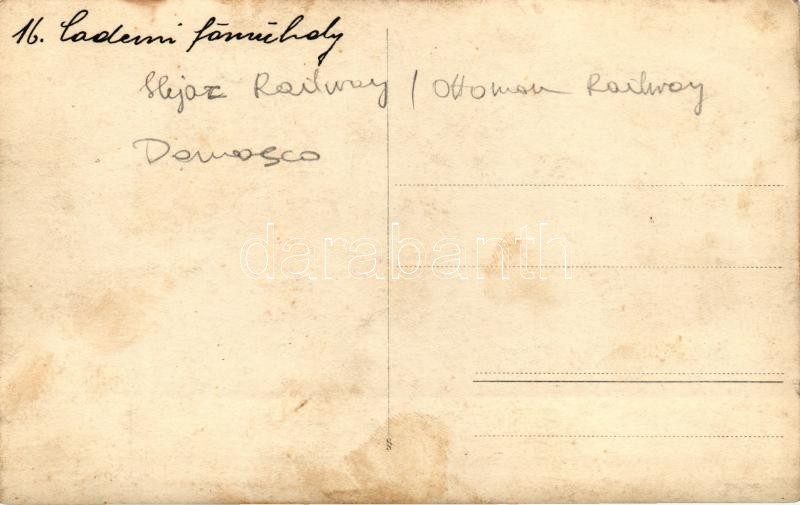 16. Cademi főműhely
Hejaz Railway / Ottoman Railway
Damasco
darabanth